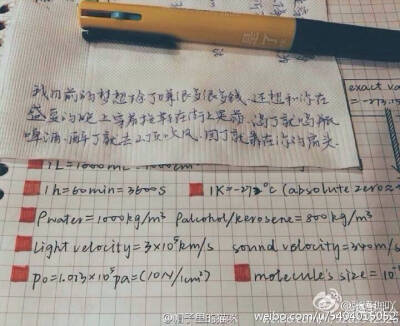 我目前的梦想除了赚很多很多钱,还想和你在
盛夏的晚上穿着拖鞋在街上晃荡,渴了就喝瓶
啤酒,醉了就去江边吹风,困了就靠在你的肩头.
exact va
= -273.15
1L = 1000
1h=60min=3600s
1K=-272°C (absolute zero≈
ρwater=1000kg/m³ ρalcohol/kerosene=800kg/m³
Light velocity=3×10⁵km/s
sound velocity=340m/s
p0=1.013×10⁵pa=(10N/1cm²)
molecule's size=10
weibo.com/u/5404015052